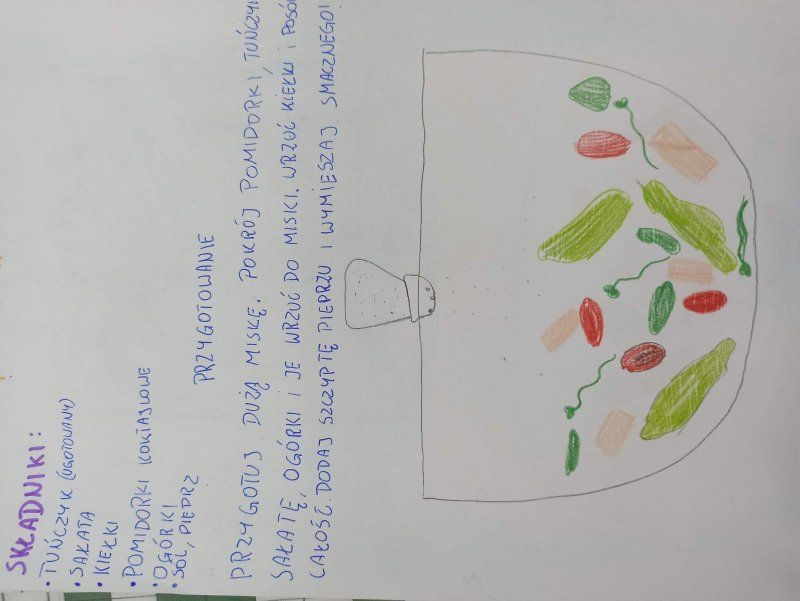 SKŁADNIKI:
• TUŃCZYK (UGOTOWANY)
• SAŁATA
• KIEŁKI
• POMIDORKI KOKTAJLOWE
• OGÓRKI
• SÓL, PIEPRZ
PRZYGOTOWANIE
PRZYGOTUJ DUŻĄ MISKĘ. POKRÓJ POMIDORKI, TUŃCZYK
SAŁATĘ, OGÓRKI I JE WRZUĆ DO MISKI. WRZUĆ KIEŁKI I
CAŁOŚĆ. DODAJ SZCZYPTĘ PIEPRZU I WYMIESZAJ. SMACZNEGO!